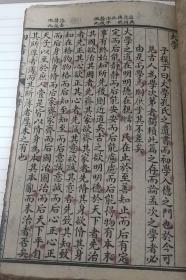 大學
子程子曰大學孔氏之遺書而初學入德之門也於今可
見古人為學次第者獨賴此篇之存而論孟次之學者必
由是而學焉則庶乎其不差矣
大學之道在明明德在親民在止於至善知止而后有定
定而后能靜靜而后能安安而后能慮慮而后能得物有本末
事有終始知所先後則近道矣古之欲明明德於天下者先治
其國欲治其國者先齊其家欲齊其家者先修其身欲
修其身者先正其心欲正其心者先誠其意欲誠其意者先致其知致
知在格物物格而后知至知至而后意誠意誠而后心正心正
而后身修身修而后家齊家齊而后國治國治而后天下平自
天子以至於庶人壹是皆以修身為本其本亂而末治者否矣
其所厚者薄而其所薄者厚未之有也